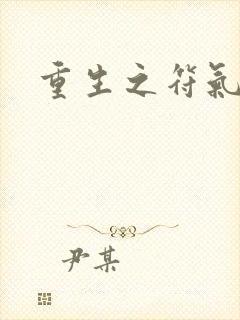 重生之符氣
尹某